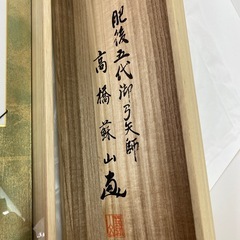 肥後五代御弓矢師
高橋蘇山